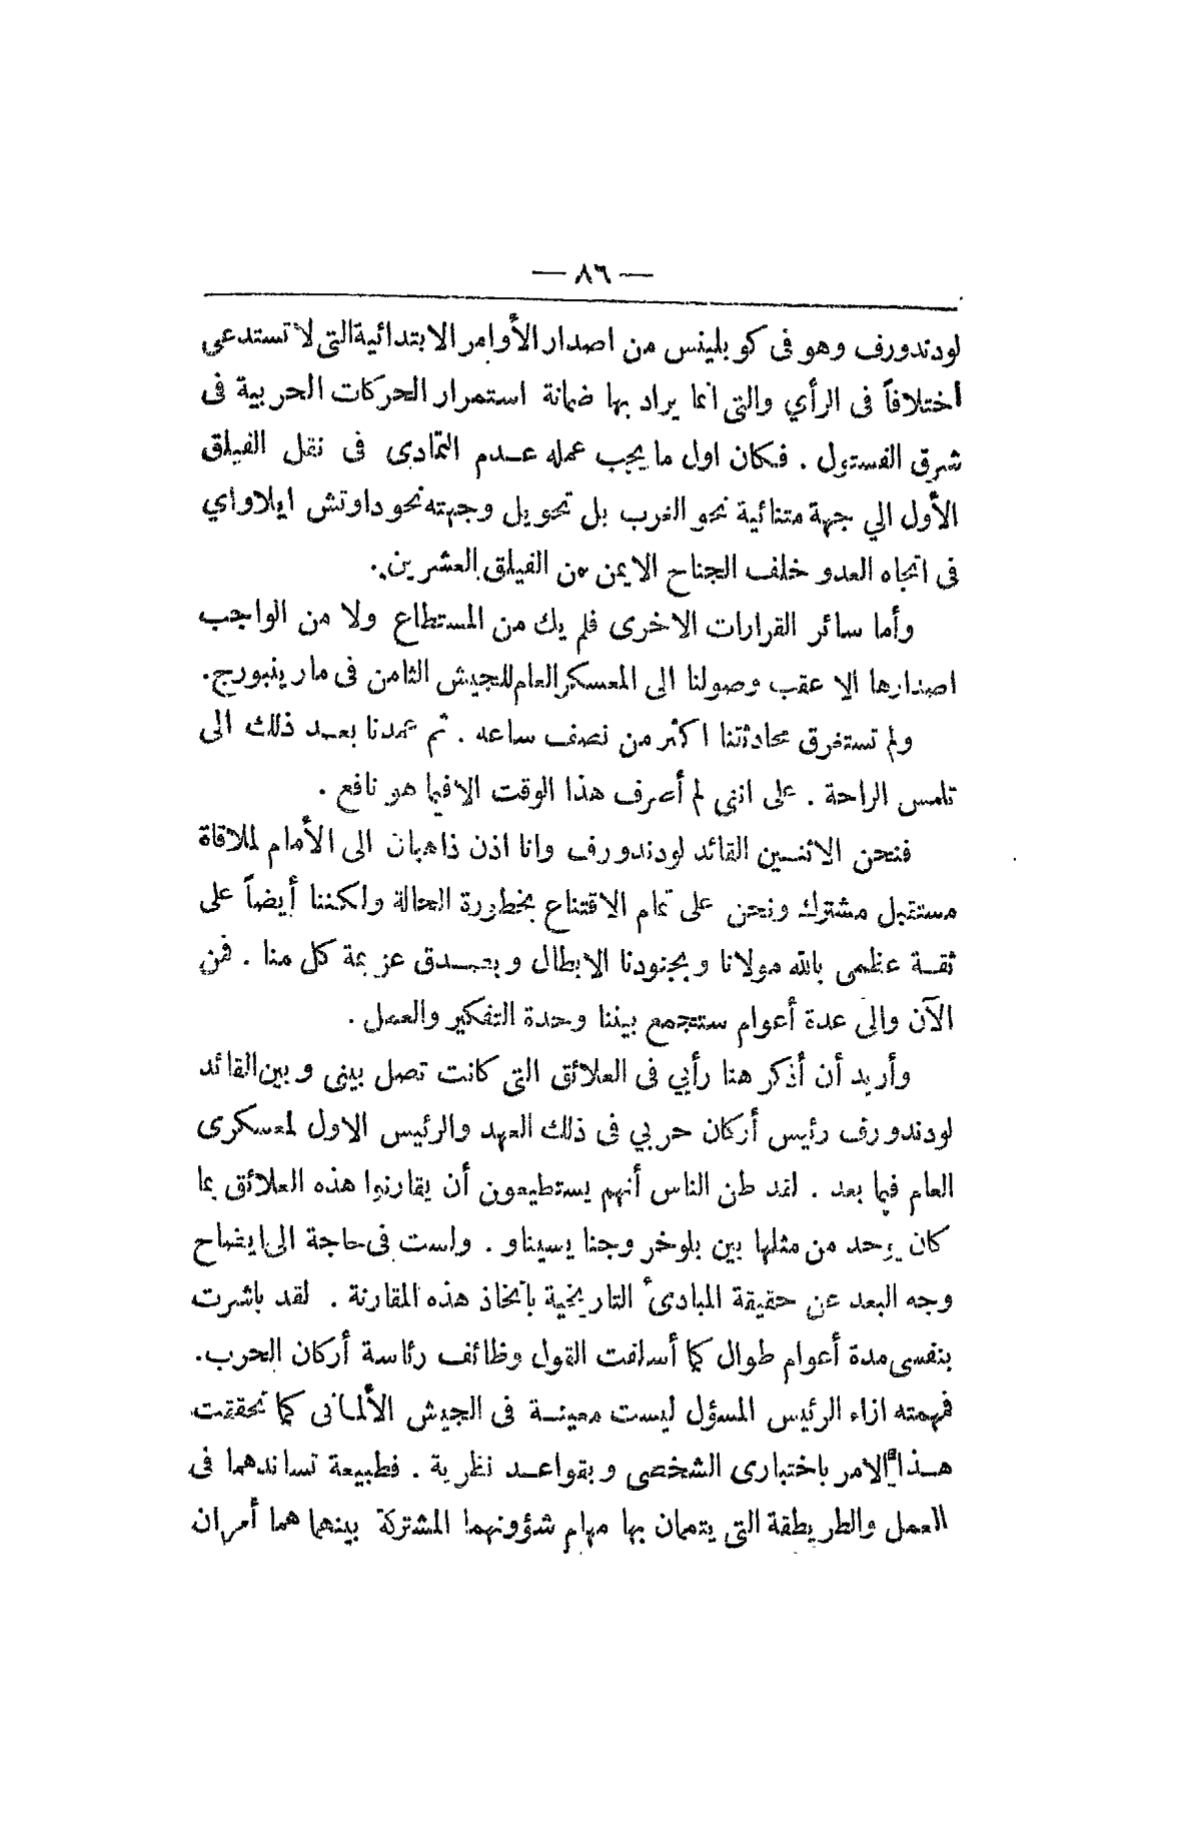 — ٨٦ —
لودندورف وهو فى كوبلينس من اصدار الأوامر الابتدائية التى لا تستدعى
اختلافاً فى الرأي والتى انما يراد بها ضمانة استمرار الحركات الحربية فى
شرق الفستول . فكان اول ما يجب عمله عدم التمادى فى نقل الفيلق
الأول الي جهة متنائية نحو الغرب بل تحويل وجهته نحو داوتش ايلاواي
فى اتجاه العدو خلف الجناح الايمن من الفيلق العشرين .
وأما سائر القرارات الاخرى فلم يك من المستطاع ولا من الواجب
اصدارها الا عقب وصولنا الى المعسكر العام للجيش الثامن فى مارينبورج.
ولم تستغرق محادثتنا اكثر من نصف ساعه . ثم عمدنا بعد ذلك الى
تلمس الراحة . على اننى لم أصرف هذا الوقت الا فيما هو نافع .
فنحن الاثنين القائد لودندورف وانا اذن ذاهبان الى الأمام لملاقاة
مستقبل مشترك ونحن على تمام الاقتناع بخطورة الحالة ولكننا أيضاً على
ثقة عظمى بالله مولانا وبجنودنا الابطال وبصدق عزيمة كل منا . فمن
الآن والى عدة أعوام ستتجمع بيننا وحدة التفكير والعمل .
وأريد أن أذكر هنا رأيي فى العلائق التى كانت تصل بينى وبين القائد
لودندورف رئيس أركان حربي فى ذلك العهد والرئيس الاول لمعسكرى
العام فيما بعد . لقد ظن الناس أنهم يستطيعون أن يقارنوا هذه العلائق بما
كان يوجد من مثلها بين بلوخر وجنايسيناو . ولست فى حاجة الى ايضاح
وجه البعد عن حقيقة المبادئ التاريخية باتخاذ هذه المقارنة . لقد باشرت
بنفسى مدة أعوام طوال كما أسلفت القول وظائف رئاسة أركان الحرب.
فمهمته ازاء الرئيس المسؤل ليست معينة فى الجيش الألمانى كما تحققت
هذا الامر باختبارى الشخصى وبقواعد نظرية . فطبيعة تساندهما فى
العمل والطريطقة التى يتمان بها مهام شؤونهما المشتركة بينهما هما أمران